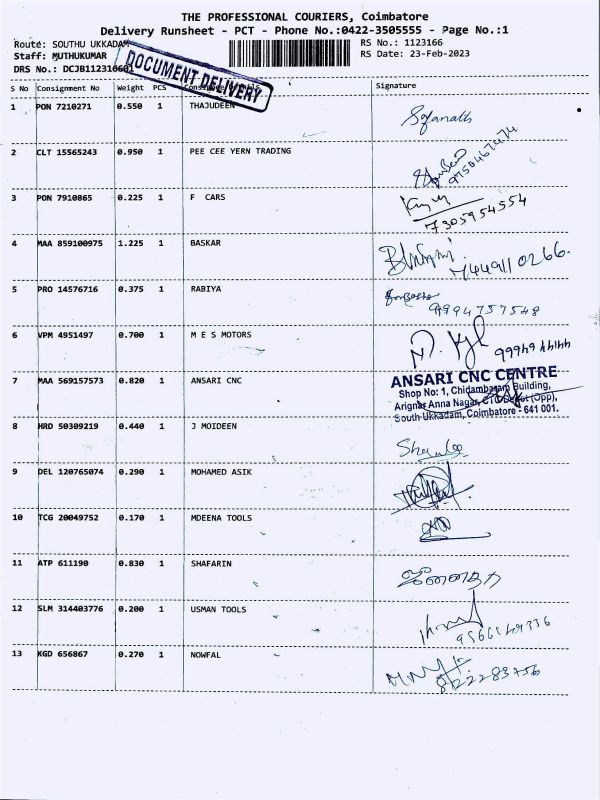 THE PROFESSIONAL COURIERS, Coimbatore
Delivery Runsheet - PCT - Phone No.:0422-3505555 - Page No.:1
Route: SOUTHU UKKADAM RS No.: 1123166
Staff: MUTHUKUMAR RS Date: 23-Feb-2023
DRS No.: DCJB112316601
DOCUMENT DELIVERY
S No Consignment No Weight PCS Signature
1 PON 7210271 0.550 1 THAJUDEEN
2 CLT 15565243 0.950 1 PEE CEE YERN TRADING
9750467474
3 PON 7910865 0.225 1 F CARS
7305954554
4 MAA 859100975 1.225 1 BASKAR
5 PRO 14576716 0.375 1 RABIYA
9994757548
6 VPM 4951497 0.700 1 M E S MOTORS
7 MAA 569157573 0.820 1 ANSARI CNC
ANSARI CNC CENTRE
Shop No: 1, Chidambaram Building,
Arignar Anna Nagar, CTC Depot (Opp),
South Ukkadam, Coimbatore - 641 001.
8 HRD 50309219 0.440 1 J MOIDEEN
9 DEL 120765074 0.290 1 MOHAMED ASIK
10 TCG 20049752 0.170 1 MDEENA TOOLS
11 ATP 611190 0.830 1 SHAFARIN
12 SLM 314403776 0.200 1 USMAN TOOLS
13 KGD 656867 0.270 1 NOWFAL